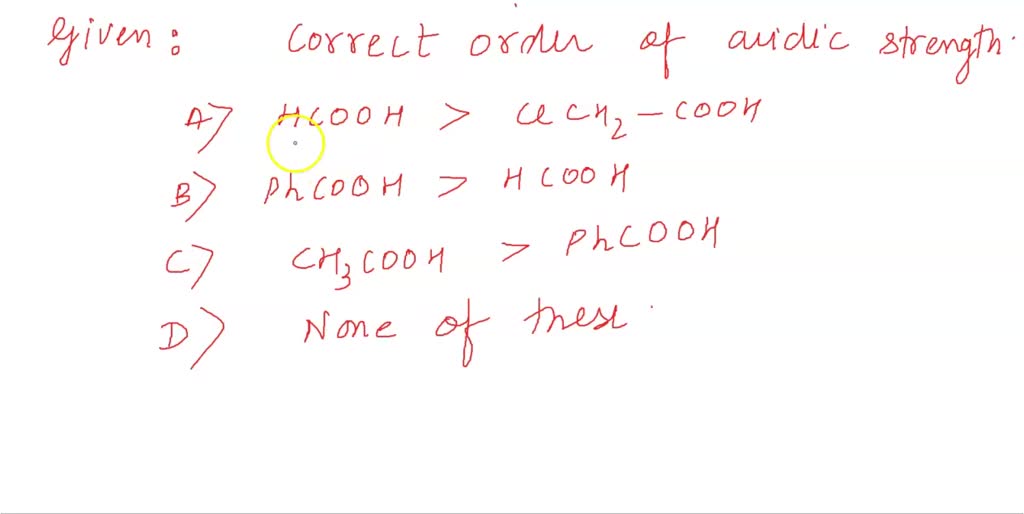 Given: Correct order of acidic strength.
A) HCOOH > ClCH2-COOH
B) PhCOOH > HCOOH
C) CH3COOH > PhCOOH
D) None of these.